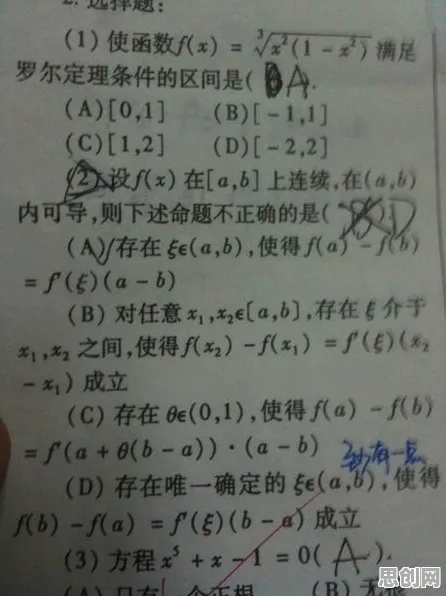 2. 选择题:
(1) 使函数f(x) = ∛x²(1 − x²) 满足
罗尔定理条件的区间是( A ).
(A)[0,1] (B)[−1,1]
(C)[1,2] (D)[−2,2]
(2) 设f(x)在[a,b]上连续,在(a,b)
内可导,则下述命题不正确的是( D
(A) 存在ξϵ(a,b),使得f(a) − f(b)
= f′(ξ)(a − b)
(B) 对任意x₁,x₂ϵ[a,b],存在ξ介于
x₁,x₂之间,使得f(x₂) − f(x₁) = f′(ξ)(x₂
− x₁) 成立
(C) 存在θϵ(0,1),使得f(a) − f(b)
= f′(a + θ(b − a))·(a − b)
至少有一点
(D) 存在唯一确定的ξϵ(a,b),使得
f(b) − f(a) = f′(ξ)(b − a) 成立
(3) 方程x⁵ + x − 1 = 0( A ).
(A) 只有一个正根 (B) 无根
思创网